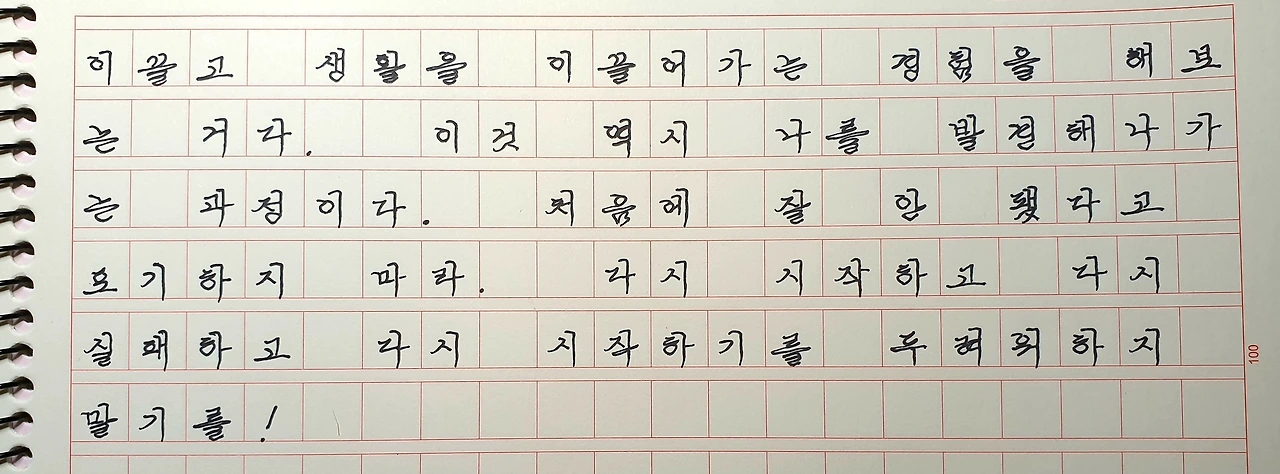 이끌고 생활을 이끌어가는 경험을 해보
는 거다. 이것 역시 나를 발견해나가
는 과정이다. 처음에 잘 안 됐다고
포기하지 마라. 다시 시작하고 다시
실패하고 다시 시작하기를 두려워하지
말기를!
100